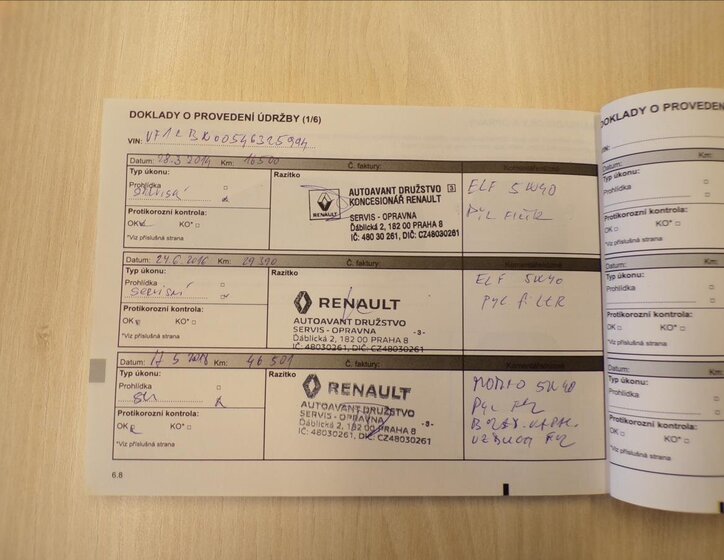 DOKLADY O PROVEDENÍ ÚDRŽBY (1/6)
VIN:
Datum: 28.3 2014 Km: 16500 Č. faktury:
Typ úkonu:
Prohlídka
servisní
Protikorozní kontrola:
OK KO*
*Viz příslušná strana
Razítko
RENAULT
AUTOAVANT DRUŽSTVO 3
KONCESIONÁŘ RENAULT
SERVIS - OPRAVNA
Ďáblická 2, 182 00 PRAHA 8
IČ: 480 30 261, DIČ: CZ48030261
ELF 5W40
Pyl
Datum: 24.6 2016 Km: 29390 Č. faktury:
Typ úkonu:
Prohlídka
servisní
Protikorozní kontrola:
OK KO*
*Viz příslušná strana
Razítko
RENAULT
AUTOAVANT DRUŽSTVO
SERVIS - OPRAVNA -3-
Ďáblická 2, 182 00 PRAHA 8
IČ: 48030261, DIČ: CZ48030261
ELF 5W40
Pyl filtr
Datum: 17 5 2018 Km: 46501 Č. faktury:
Typ úkonu:
Prohlídka
Protikorozní kontrola:
OK KO*
*Viz příslušná strana
Razítko
RENAULT
AUTOAVANT DRUŽSTVO
SERVIS - OPRAVNA -3-
Ďáblická 2, 182 00 PRAHA 8
IČ: 48030261, DIČ: CZ48030261
5W40
Pyl
6.8
DOKLADY O PROVEDEN
VIN:
Datum:
Typ úkonu:
Prohlídka
Protikorozní kontrola:
OK KO*
*Viz příslušná strana
Datum:
Typ úkonu:
Prohlídka
Protikorozní kontrola:
OK KO*
*Viz příslušná strana
Datum:
Typ úkonu:
Prohlídka
Protikorozní kontrola:
OK KO*
*Viz příslušná strana